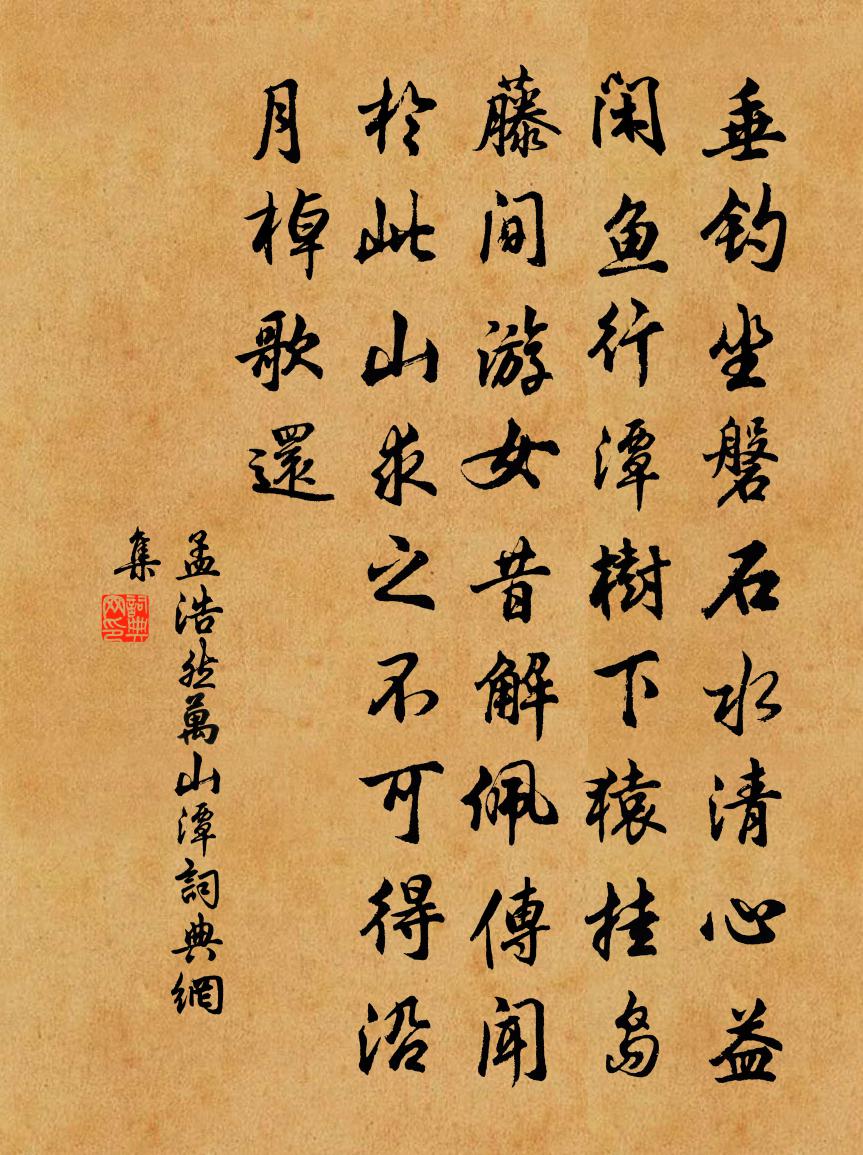 垂钓坐磐石水清心益
闲鱼行潭樹下猿挂岛
藤间游女昔解佩傳闻
於此山求之不可得沿
月棹歌還
孟浩然萬山潭詞典網
集
詞典
网印